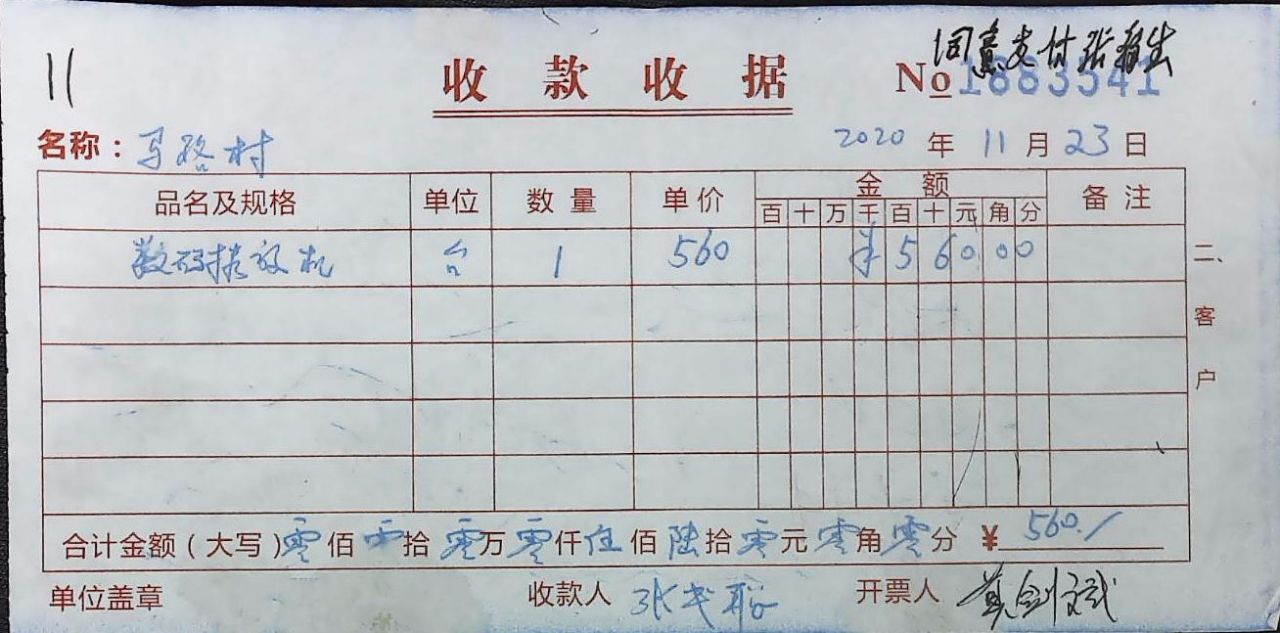 11
同意支付张
收款收据
No 1883541
名称：马路村
2020年11月23日
品名及规格 单位 数量 单价 金额 备注
百 十 万 千 百 十 元 角 分
数码播放机 台 1 560 ¥56000
二、客户
合计金额（大写）零佰零拾零万零仟伍佰陆拾零元零角零分 ¥560./
单位盖章 收款人 张 开票人 黄剑斌